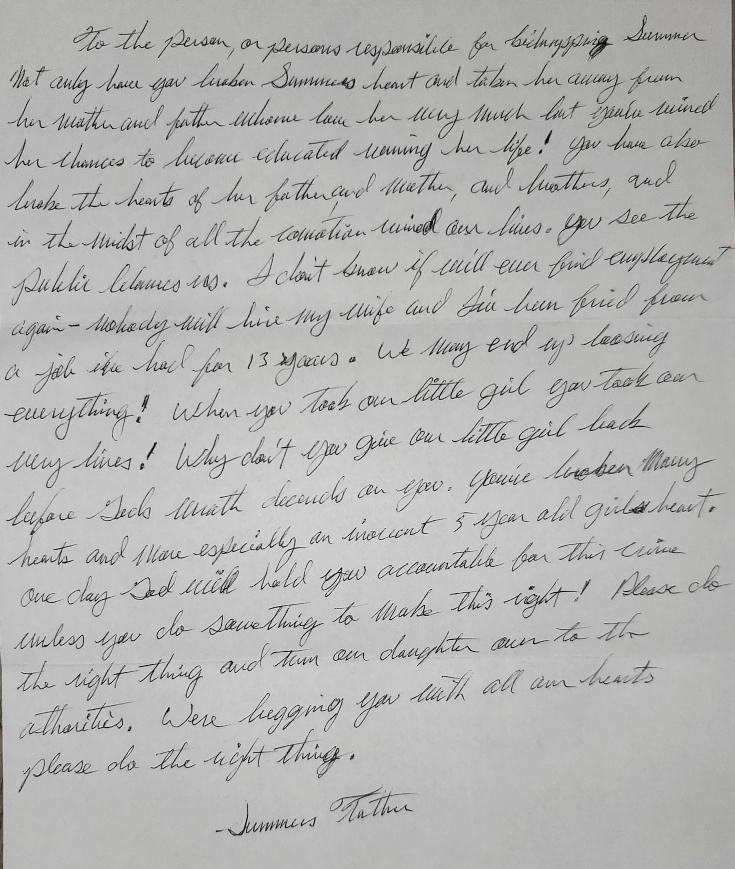 To the person, or persons responsible for kidnapping Summer
Not only have you broken Summers heart and taken her away from
her mother and father whome love her very much but you've ruined
her chances to become educated running her life! You have also
broke the hearts of her father and mother, and brothers, and
in the midst of all the comotion ruined our lives. You see the
public blames us. I don't know if will ever find employment
again - nobody will hire my wife and I've been fried from
a job ive had for 13 years. We may end up loosing
everything! When you took our little girl you took our
very lives! Why don't you give our little girl back
before Gods wrath decends on you. You've broken Many
hearts and more especially an inocent 5 year old girls heart.
One day God will hold you accountable for this crime
unless you do something to make this right! Please do
the right thing and turn our daughter over to the
athorities. Were begging you with all our hearts
please do the right thing.
- Summers Father